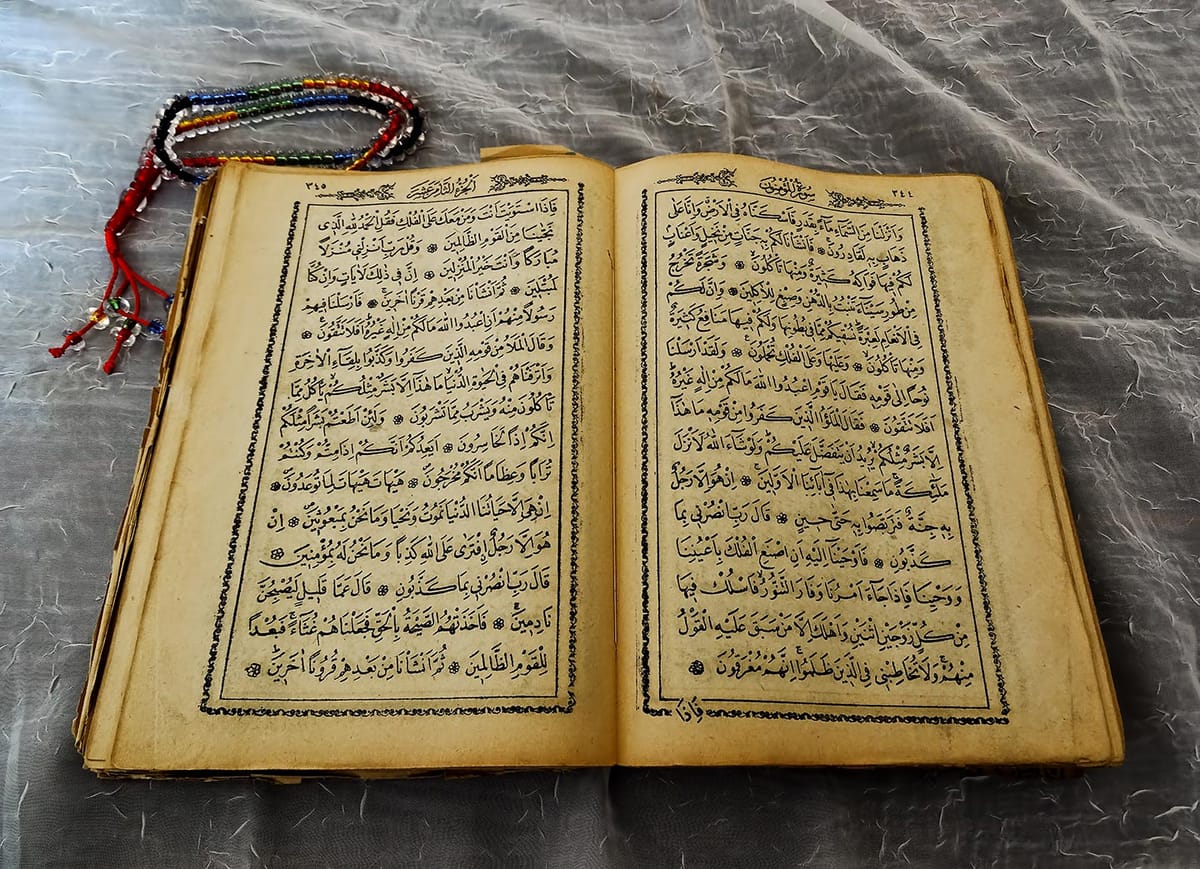 سُورَةُ الْمُؤْمِنُونَ ٣٤٤
وَاَنْزَلْنَا مِنَ السَّمَاءِ مَاءً بِقَدَرٍ فَاَسْكَنَّاهُ فِي الْاَرْضِ وَاِنَّا عَلٰى
ذَهَابٍ بِهِ لَقَادِرُونَ ۞ فَاَنْشَأْنَا لَكُمْ بِهِ جَنَّاتٍ مِنْ نَخِيلٍ وَاَعْنَابٍ
لَكُمْ فِيهَا فَوَاكِهُ كَثِيرَةٌ وَمِنْهَا تَأْكُلُونَ ۞ وَشَجَرَةً تَخْرُجُ
مِنْ طُورِ سَيْنَاءَ تَنْبُتُ بِالدُّهْنِ وَصِبْغٍ لِلْاٰكِلِينَ ۞ وَاِنَّ لَكُمْ
فِي الْاَنْعَامِ لَعِبْرَةً نُسْقِيكُمْ مِمَّا فِي بُطُونِهَا وَلَكُمْ فِيهَا مَنَافِعُ كَثِيرَةٌ
وَمِنْهَا تَأْكُلُونَ ۞ وَعَلَيْهَا وَعَلَى الْفُلْكِ تُحْمَلُونَ ۞ وَلَقَدْ اَرْسَلْنَا
نُوحًا اِلٰى قَوْمِهِ فَقَالَ يَا قَوْمِ اعْبُدُوا اللهَ مَا لَكُمْ مِنْ اِلٰهٍ غَيْرُهُ
اَفَلَا تَتَّقُونَ ۞ فَقَالَ الْمَلَؤُا الَّذِينَ كَفَرُوا مِنْ قَوْمِهِ مَا هٰذَا
اِلَّا بَشَرٌ مِثْلُكُمْ يُرِيدُ اَنْ يَتَفَضَّلَ عَلَيْكُمْ وَلَوْ شَاءَ اللهُ لَاَنْزَلَ
مَلٰئِكَةً مَا سَمِعْنَا بِهٰذَا فِي اٰبَائِنَا الْاَوَّلِينَ ۞ اِنْ هُوَ اِلَّا رَجُلٌ
بِهِ جِنَّةٌ فَتَرَبَّصُوا بِهِ حَتّٰى حِينٍ ۞ قَالَ رَبِّ انْصُرْنِي بِمَا
كَذَّبُونِ ۞ فَاَوْحَيْنَا اِلَيْهِ اَنِ اصْنَعِ الْفُلْكَ بِاَعْيُنِنَا
وَوَحْيِنَا فَاِذَا جَاءَ اَمْرُنَا وَفَارَ التَّنُّورُ فَاسْلُكْ فِيهَا
مِنْ كُلٍّ زَوْجَيْنِ اثْنَيْنِ وَاَهْلَكَ اِلَّا مَنْ سَبَقَ عَلَيْهِ الْقَوْلُ
مِنْهُمْ وَلَا تُخَاطِبْنِي فِي الَّذِينَ ظَلَمُوا اِنَّهُمْ مُغْرَقُونَ ۞
فَاِذَا
اَلْجُزْءُ الثَّامِنُ عَشَرَ ٣٤٥
فَاِذَا اسْتَوَيْتَ اَنْتَ وَمَنْ مَعَكَ عَلَى الْفُلْكِ فَقُلِ الْحَمْدُ لِلّٰهِ الَّذِي
نَجّٰينَا مِنَ الْقَوْمِ الظَّالِمِينَ ۞ وَقُلْ رَبِّ اَنْزِلْنِي مُنْزَلًا
مُبَارَكًا وَاَنْتَ خَيْرُ الْمُنْزِلِينَ ۞ اِنَّ فِي ذٰلِكَ لَاٰيَاتٍ وَاِنْ كُنَّا
لَمُبْتَلِينَ ۞ ثُمَّ اَنْشَأْنَا مِنْ بَعْدِهِمْ قَرْنًا اٰخَرِينَ ۞ فَاَرْسَلْنَا فِيهِمْ
رَسُولًا مِنْهُمْ اَنِ اعْبُدُوا اللهَ مَا لَكُمْ مِنْ اِلٰهٍ غَيْرُهُ اَفَلَا تَتَّقُونَ ۞
وَقَالَ الْمَلَاُ مِنْ قَوْمِهِ الَّذِينَ كَفَرُوا وَكَذَّبُوا بِلِقَاءِ الْاٰخِرَةِ
وَاَتْرَفْنَاهُمْ فِي الْحَيٰوةِ الدُّنْيَا مَا هٰذَا اِلَّا بَشَرٌ مِثْلُكُمْ يَأْكُلُ مِمَّا
تَأْكُلُونَ مِنْهُ وَيَشْرَبُ مِمَّا تَشْرَبُونَ ۞ وَلَئِنْ اَطَعْتُمْ بَشَرًا مِثْلَكُمْ
اِنَّكُمْ اِذًا لَخَاسِرُونَ ۞ اَيَعِدُكُمْ اَنَّكُمْ اِذَا مِتُّمْ وَكُنْتُمْ
تُرَابًا وَعِظَامًا اَنَّكُمْ مُخْرَجُونَ ۞ هَيْهَاتَ هَيْهَاتَ لِمَا تُوعَدُونَ ۞
اِنْ هِيَ اِلَّا حَيَاتُنَا الدُّنْيَا نَمُوتُ وَنَحْيَا وَمَا نَحْنُ بِمَبْعُوثِينَ ۞ اِنْ
هُوَ اِلَّا رَجُلٌ افْتَرٰى عَلَى اللهِ كَذِبًا وَمَا نَحْنُ لَهُ بِمُؤْمِنِينَ ۞
قَالَ رَبِّ انْصُرْنِي بِمَا كَذَّبُونِ ۞ قَالَ عَمَّا قَلِيلٍ لَيُصْبِحُنَّ
نَادِمِينَ ۞ فَاَخَذَتْهُمُ الصَّيْحَةُ بِالْحَقِّ فَجَعَلْنَاهُمْ غُثَاءً فَبُعْدًا
لِلْقَوْمِ الظَّالِمِينَ ۞ ثُمَّ اَنْشَأْنَا مِنْ بَعْدِهِمْ قُرُونًا اٰخَرِينَ ۞